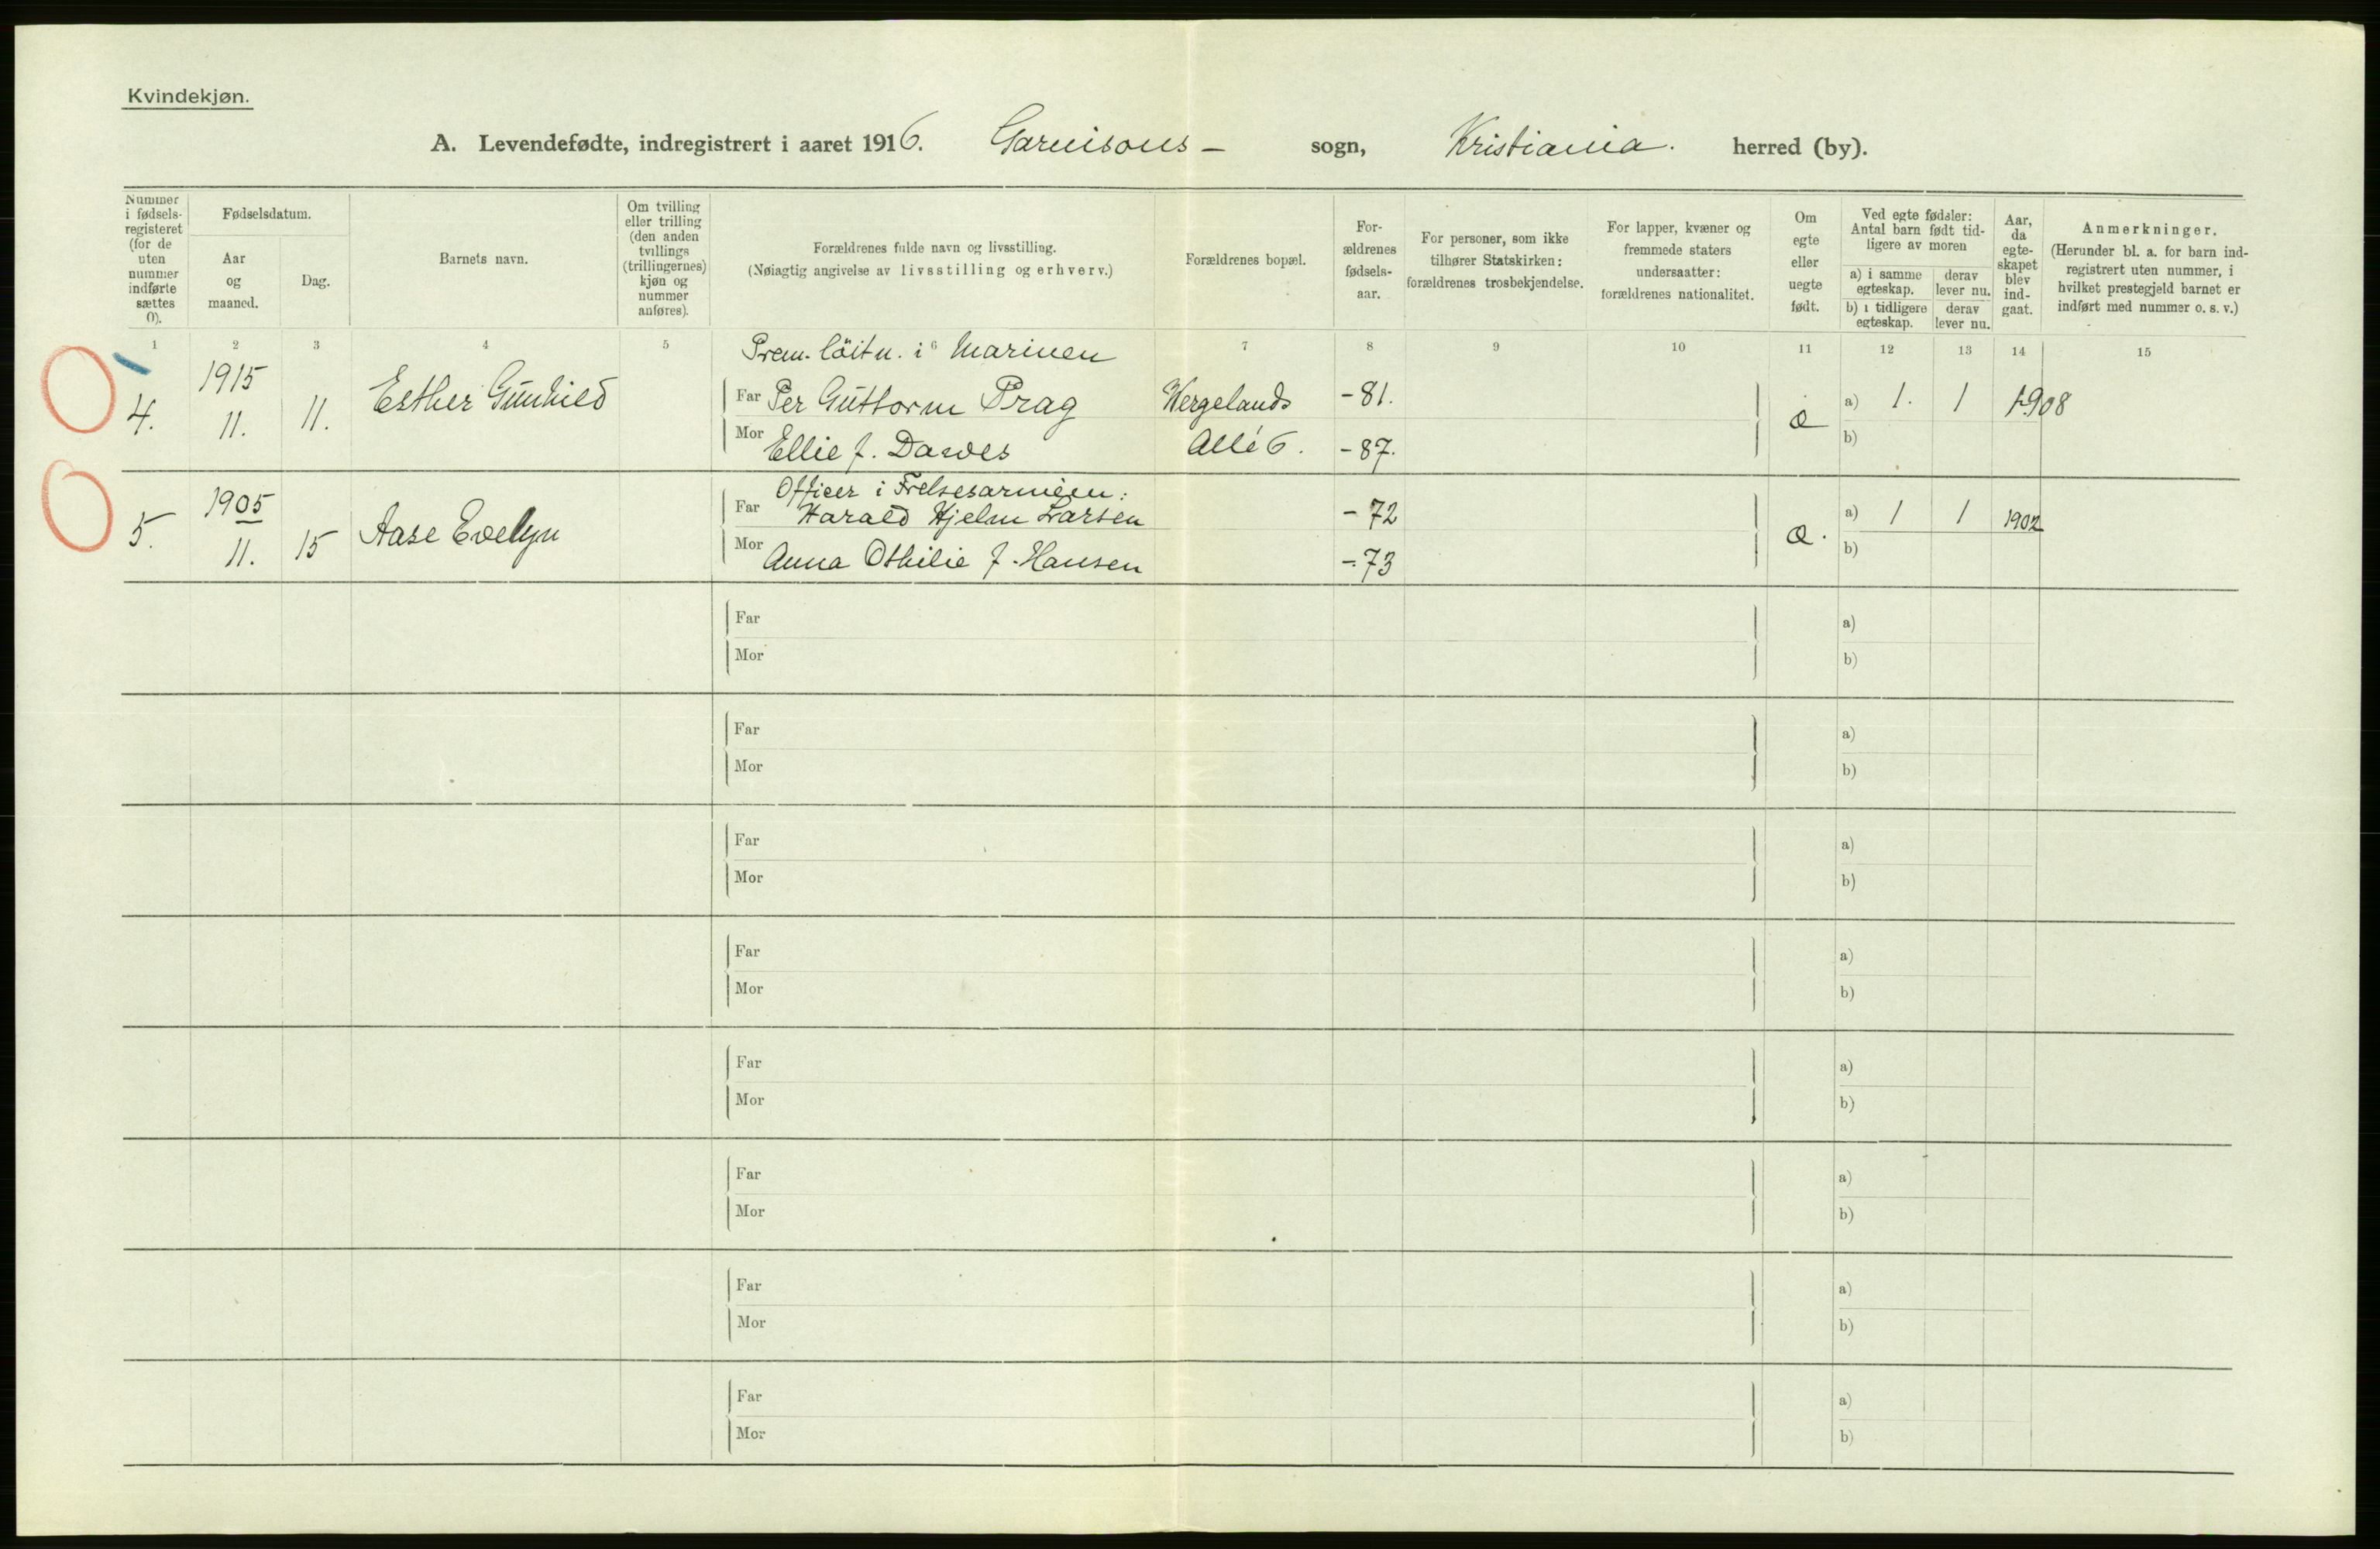 Kvindekjøn.
A. Levendefødte, indregistrert i aaret 1916. Garnisons- sogn, Kristiania. herred (by).
Nummer i fødsels-registeret (for de uten nummer indførte sættes 0).
Fødselsdatum.
Aar og maaned.
Dag.
Barnets navn.
Om tvilling eller trilling (den anden tvillings (trillingernes) kjøn og nummer anføres).
Forældrenes fulde navn og livsstilling.
(Nøiagtig angivelse av livsstilling og erhverv.)
Forældrenes bopæl.
For-ældrenes fødsels-aar.
For personer, som ikke tilhører Statskirken: forældrenes trosbekjendelse.
For lapper, kvæner og fremmede staters undersaatter: forældrenes nationalitet.
Om egte eller uegte født.
Ved egte fødsler: Antal barn født tid-ligere av moren
a) i samme egteskap.
derav lever nu.
b) i tidligere egteskap.
derav lever nu.
Aar, da egte-skapet blev ind-gaat.
Anmerkninger.
(Herunder bl. a. for barn ind-registrert uten nummer, i hvilket prestegjeld barnet er indført med nummer o. s. v.)
1 2 3 4 5 6 7 8 9 10 11 12 13 14 15
Prem. löitn. i Marinen
4. 1915 11. 11. Esther Gunhild Far Per Guttorm Prag Wergelands -81. æ a) 1. 1 1908
Mor Ellie f. Dawes Allé 6. -87. b)
Officer i Frelsesarméen:
5. 1905 11. 15 Aase Evelyn Far Harald Hjelm Larsen -72 æ. a) 1 1 1902
Mor Anna Othilie f. Hansen -73 b)
Far a)
Mor b)
Far a)
Mor b)
Far a)
Mor b)
Far a)
Mor b)
Far a)
Mor b)
Far a)
Mor b)
Far a)
Mor b)
Far a)
Mor b)